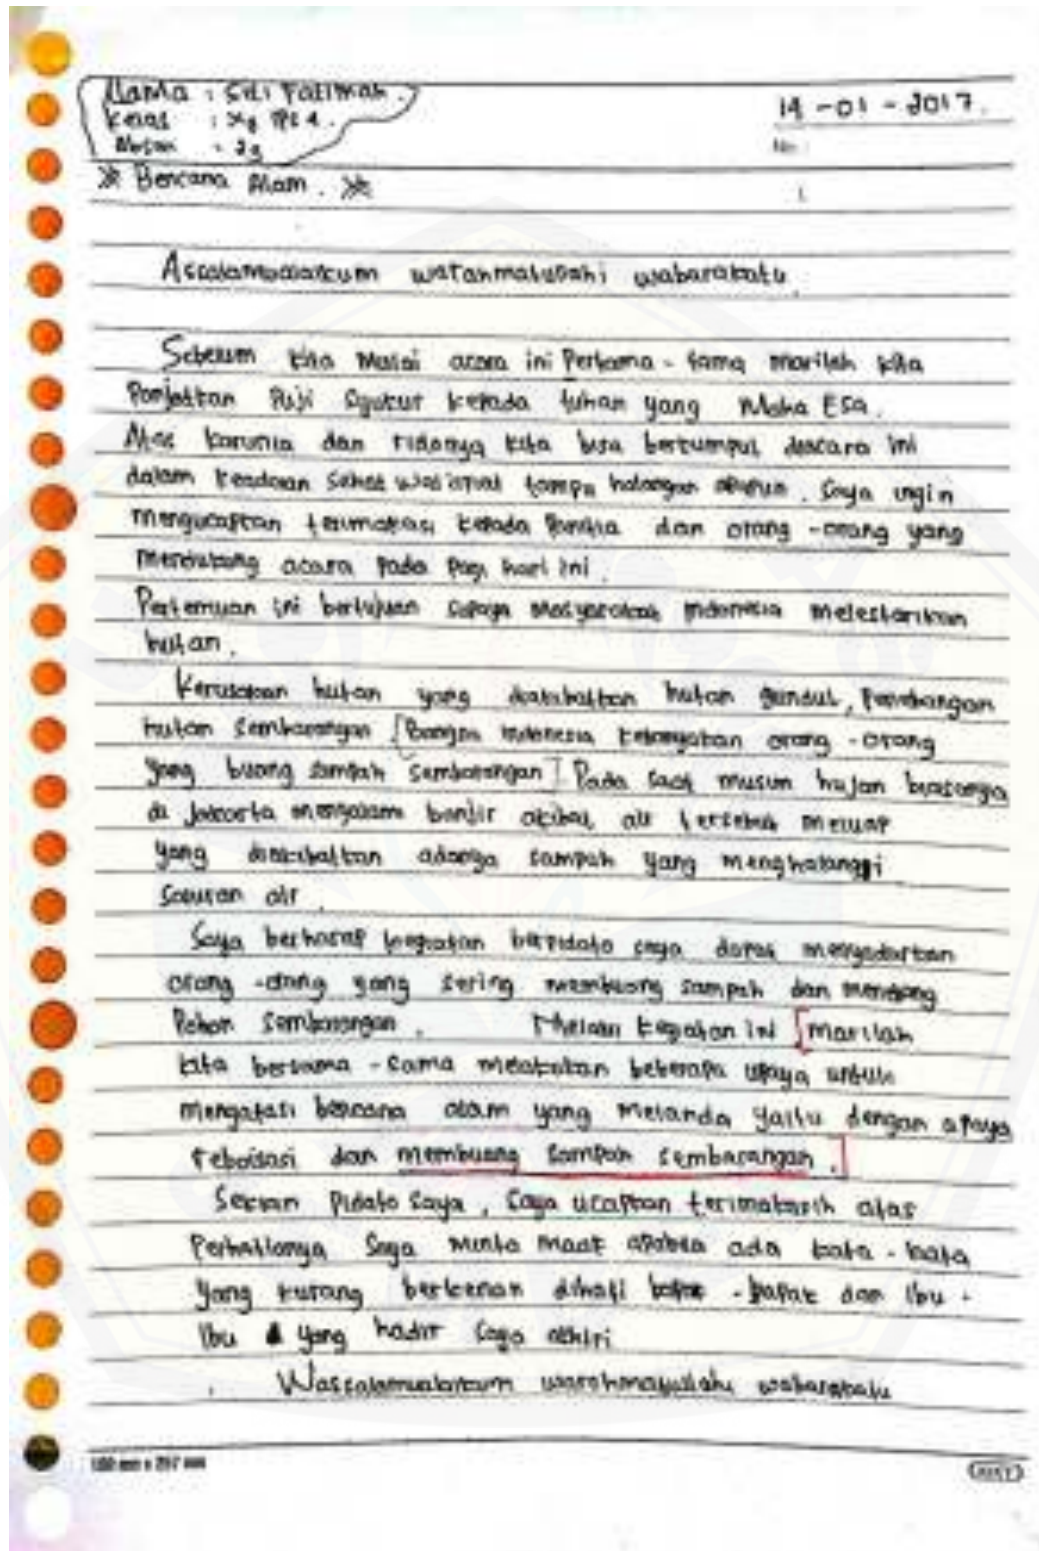 Nama : Siti Fatimah.
Kelas : XI IPS 1.
Absen : 29
14 - 01 - 2017.
No :
※ Bencana Alam. ※
Assalamualaikum warahmatullahi wabarakatu.
Sebelum kita Mulai acara ini Pertama - tama marilah kita
Panjatkan Puji Syukur kepada tuhan yang Maha Esa.
Atas karunia dan ridonya kita bisa berkumpul diacara ini
dalam keadaan sehat wal'afiat tampa halangan apapun. Saya ingin
mengucapkan terimakasi kepada Panitia dan orang - orang yang
mendukung acara pada pagi hari ini.
Pertemuan ini bertujuan supaya Masyarakat indonesia melestarikan
hutan.
Kerusakan hutan yang diakibatkan hutan gundul, Penebangan
hutan Sembarangan [Bangsa indonesia kebanyakan orang - orang
yang buang sampah Sembarangan] Pada saat musim hujan biasanya
di Jakarta mengalami banjir akibat air tersebut meluap
yang diakibatkan adanya sampah yang menghalanggi
saluran air.
Saya berharap kegiatan berpidato saya dapat menyadarkan
orang - orang yang sering membuang sampah dan menebang
Pohon Sembarangan. Melalui kegiatan ini [marilah
kita bersama - sama melakukan beberapa upaya untuk
mengatasi bencana alam yang melanda yaitu dengan upaya
reboisasi dan membuang sampah sembarangan.]
Sekian Pidato saya, Saya ucapkan terimakasih atas
Perhatianya Saya minta maaf apabila ada kata - kata
yang kurang berkenan dihati bapak - bapak dan Ibu -
Ibu yang hadir saya akhiri
Wassalamualaikum warohmatullahi wabarakatu